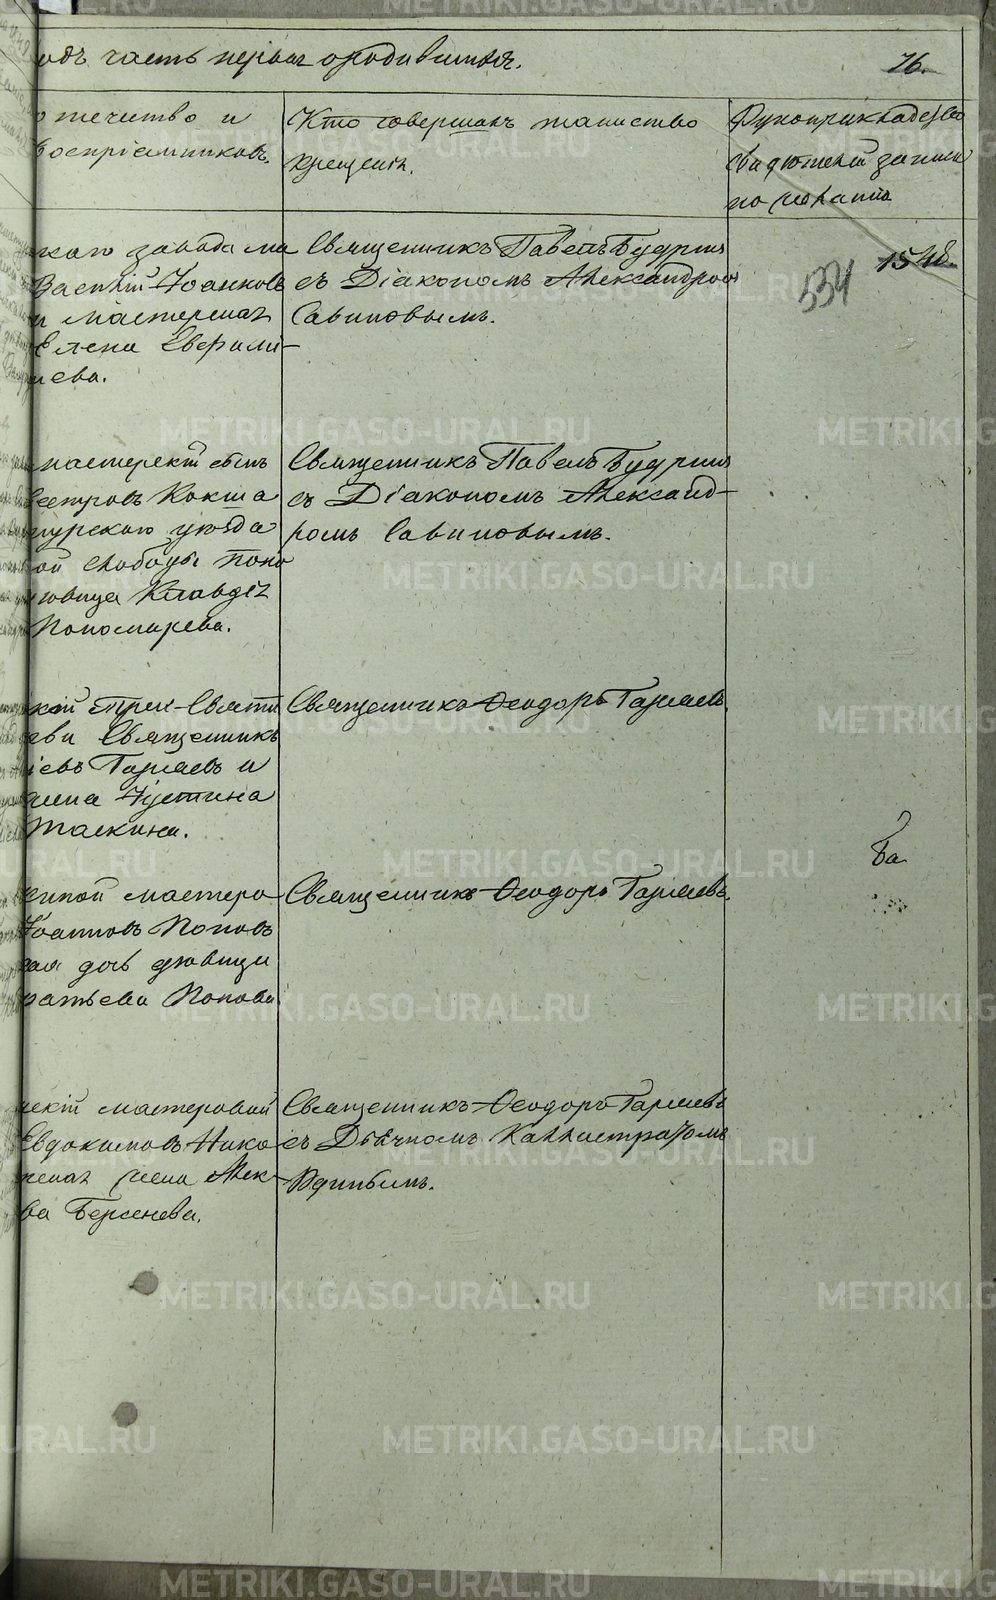 одъ часть первая о родившихся.
76.
отчество и
воспріемниковъ.
Кто совершалъ таинство
крещенія.
Рукоприкладство
свидѣтелей записи
по желанію
каго завода ма
Василій Іоанновъ
и мастерская
Елена
ева.
Священникъ Павелъ Будринъ
съ Діакономъ Александромъ
Савиновымъ.
534
1548.
мастерскій сынъ
Кокша
гурскаго уѣзда
ой слободы поно
ювица Клавдія
Пономарева.
Священникъ Павелъ Будринъ
съ Діакономъ Александ-
ромъ Савиновымъ.
кой Трех-Святи
еви Священникъ
іевъ Гаряевъ и
жена Іустина
Таскина.
Священникъ Ѳеодоръ Гаряевъ.
Ба
мастеро
Іоанновъ Поповъ
кая дочь дѣвица
ратьева Попова.
Священникъ Ѳеодоръ Гаряевъ.
скій мастеровой
Евдокимовъ Нико
жена Алек-
ва Берсенева.
Священникъ Ѳеодоръ Гаряевъ
съ Дьячкомъ Каллистратомъ
Удинымъ.
METRIKI.GASO-URAL.RU